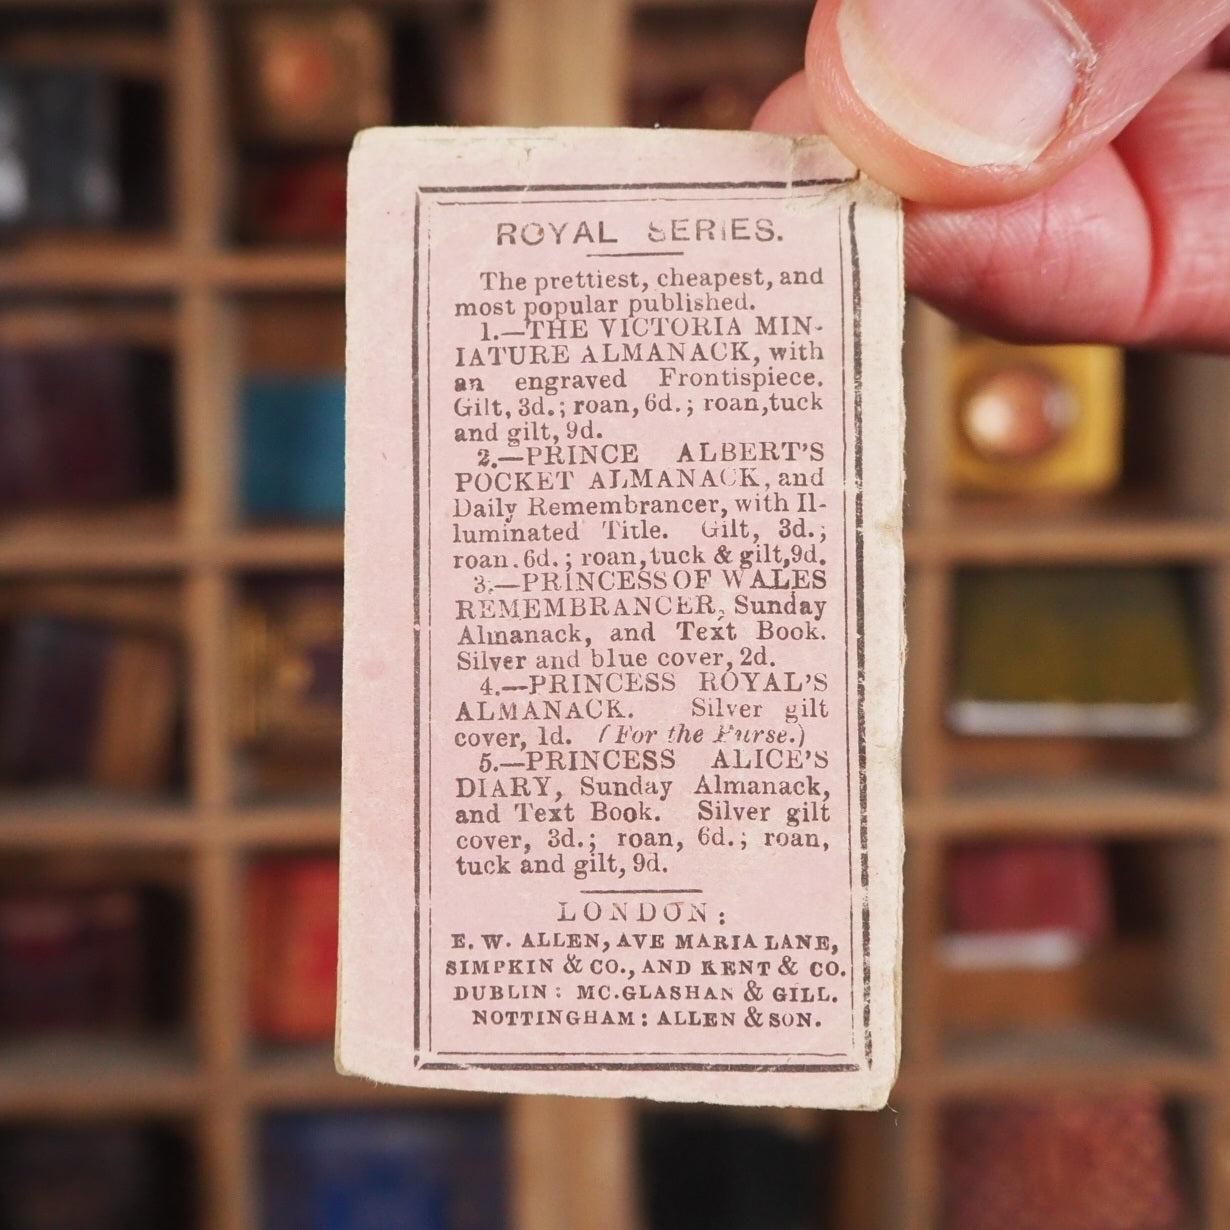 ROYAL SERIES.
The prettiest, cheapest, and
most popular published.
1.—THE VICTORIA MIN-
IATURE ALMANACK, with
an engraved Frontispiece.
Gilt, 3d.; roan, 6d.; roan, tuck
and gilt, 9d.
2.—PRINCE ALBERT'S
POCKET ALMANACK, and
Daily Remembrancer, with Il-
luminated Title. Gilt, 3d.;
roan. 6d.; roan, tuck & gilt, 9d.
3.—PRINCESS OF WALES
REMEMBRANCER, Sunday
Almanack, and Text Book.
Silver and blue cover, 2d.
4.—PRINCESS ROYAL'S
ALMANACK. Silver gilt
cover, 1d. (For the Purse.)
5.—PRINCESS ALICE'S
DIARY, Sunday Almanack,
and Text Book. Silver gilt
cover, 3d.; roan, 6d.; roan,
tuck and gilt, 9d.
LONDON:
E. W. ALLEN, AVE MARIA LANE,
SIMPKIN & CO., AND KENT & CO.
DUBLIN: MC.GLASHAN & GILL.
NOTTINGHAM: ALLEN & SON.